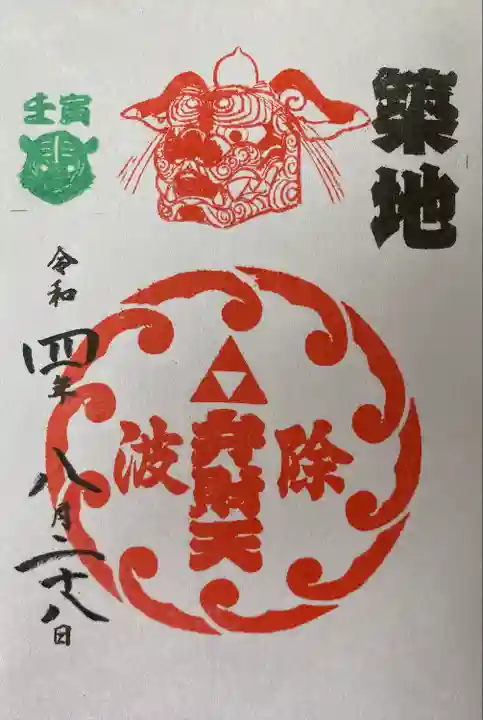 築地
除
弁財天
波
壬寅
令和四年八月二十八日